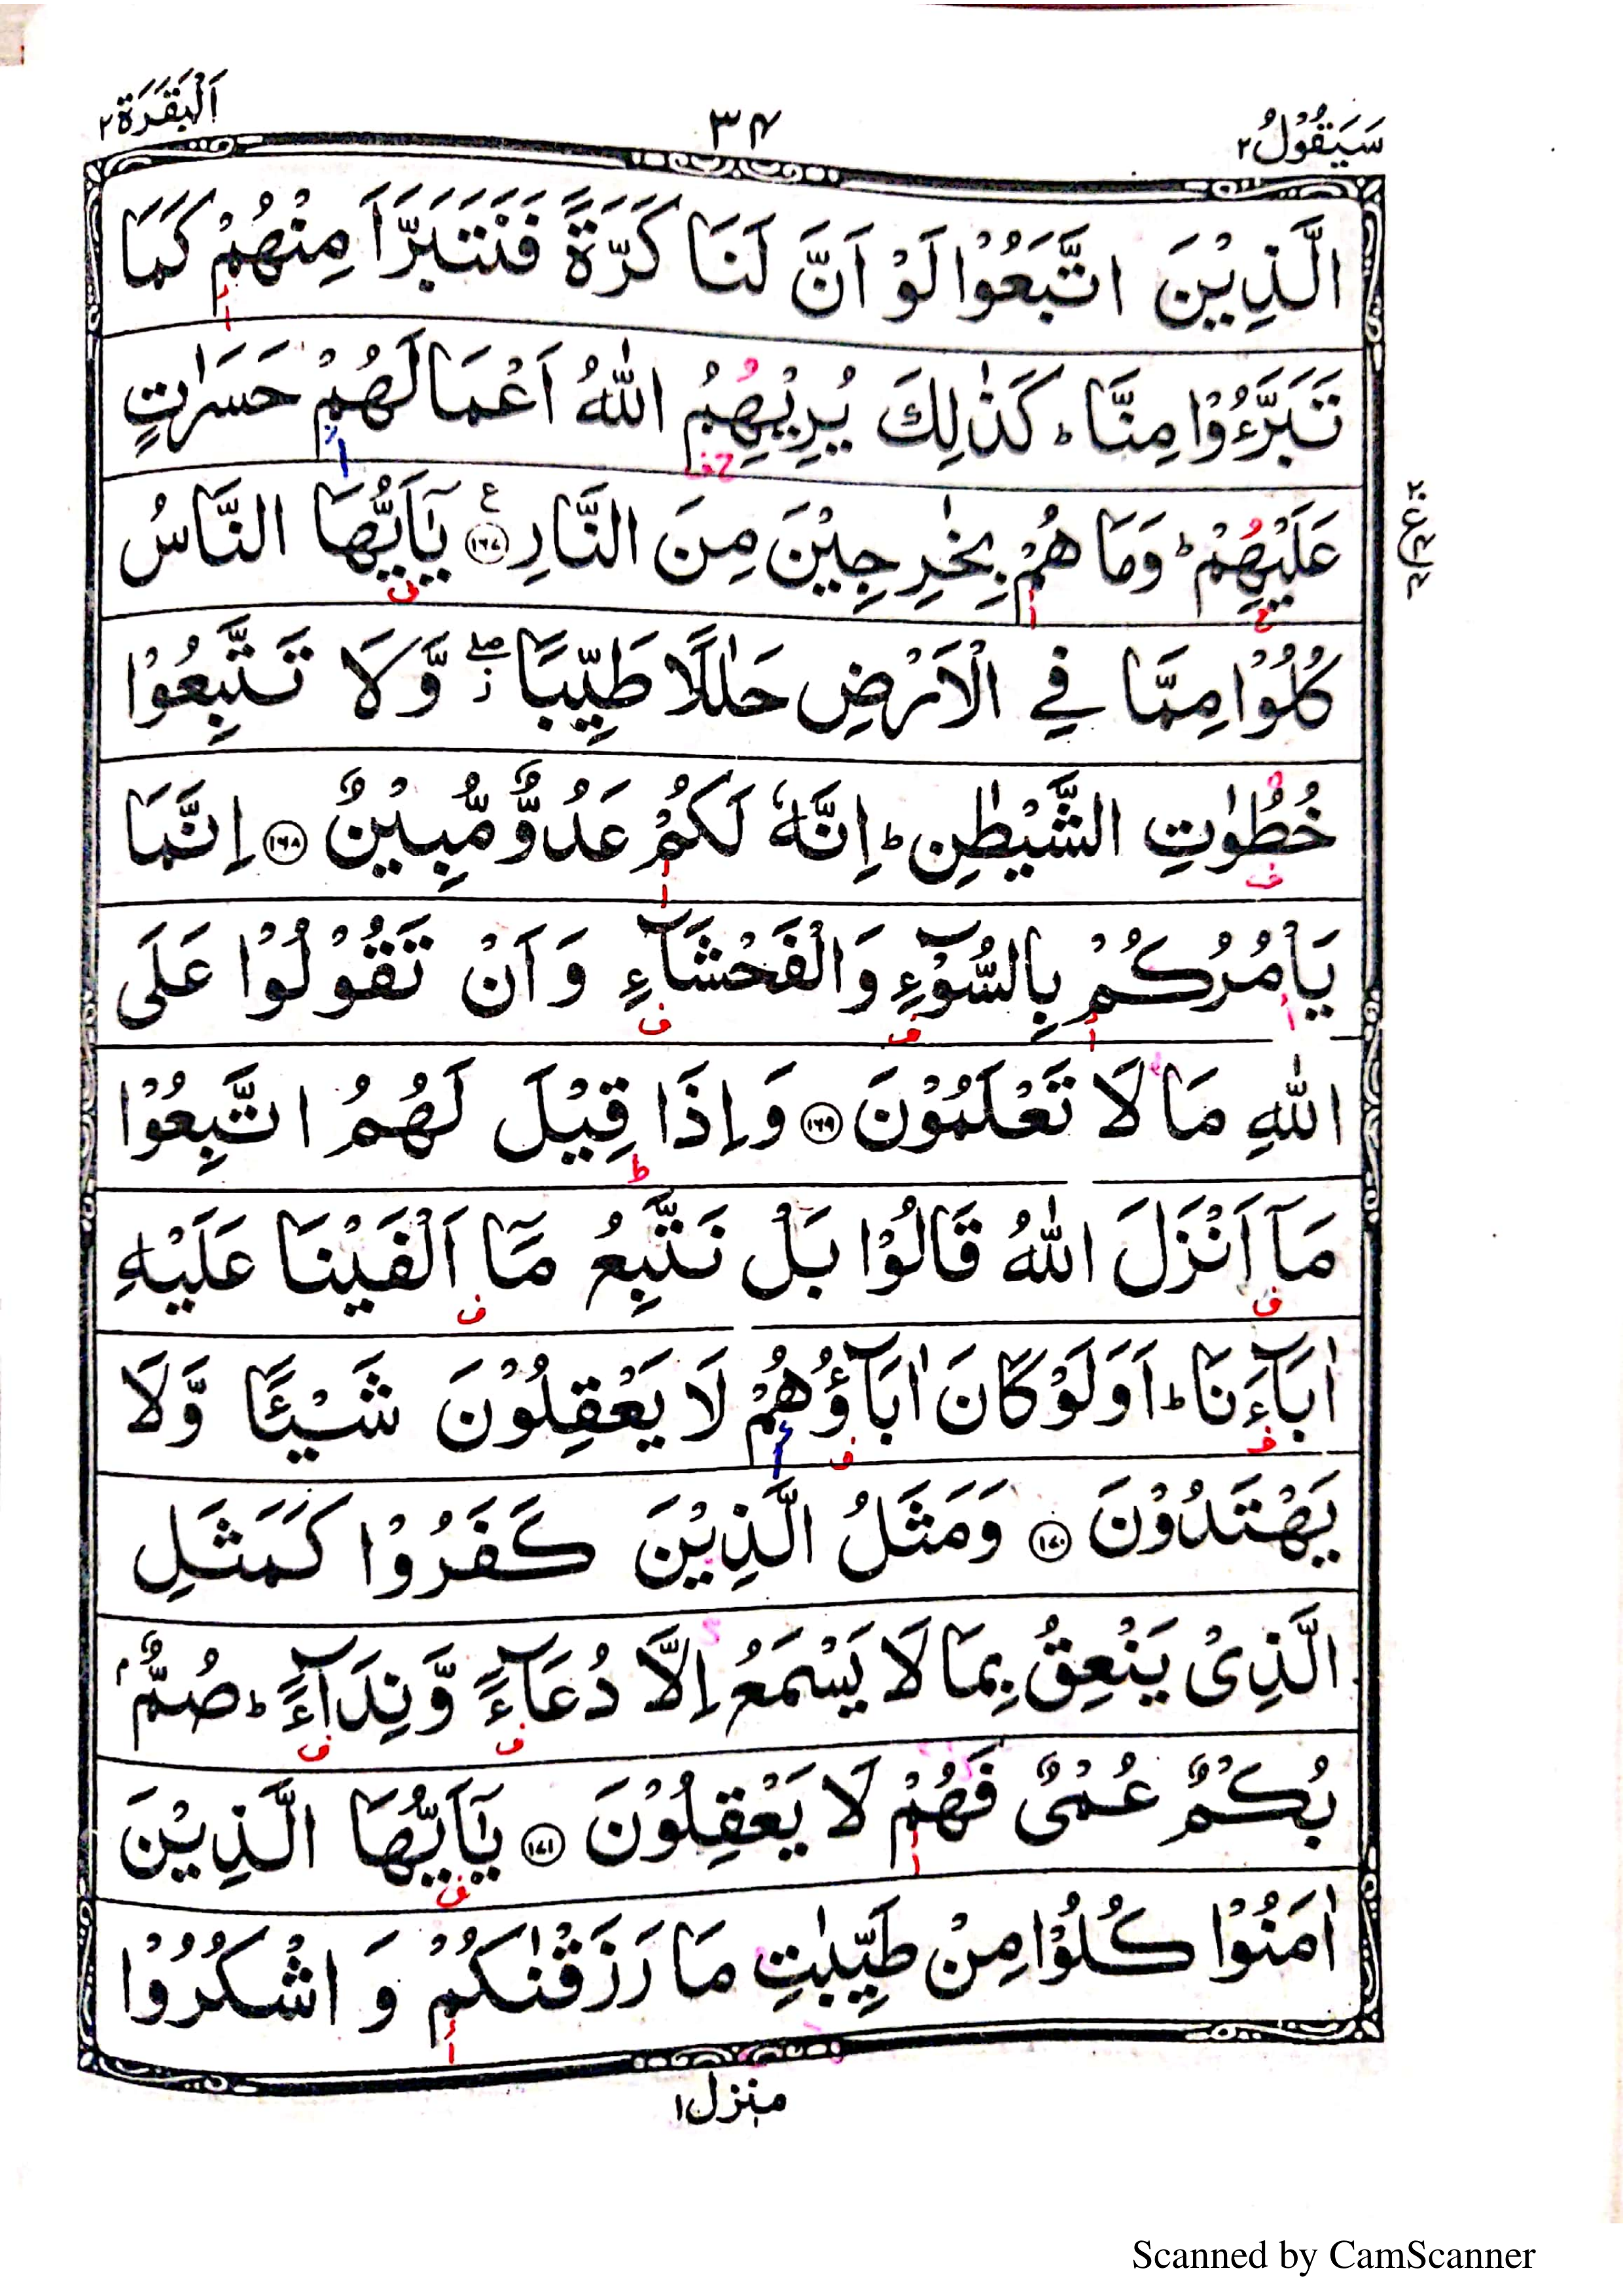 سَيَقُوْلُ ٢
٣٤
اَلْبَقَرَة ٢
الَّذِيْنَ اتَّبَعُوْا لَوْ اَنَّ لَنَا كَرَّةً فَنَتَبَرَّاَ مِنْهُمْ كَمَا
تَبَرَّءُوْا مِنَّا ؕ كَذٰلِكَ يُرِيْهِمُ اللّٰهُ اَعْمَالَهُمْ حَسَرٰتٍ
عَلَيْهِمْ ؕ وَمَا هُمْ بِخٰرِجِيْنَ مِنَ النَّارِ ﴿١٦٧﴾ ع يٰۤاَيُّهَا النَّاسُ
كُلُوْا مِمَّا فِي الْاَرْضِ حَلٰلًا طَيِّبًا ۖ وَّلَا تَتَّبِعُوْا
خُطُوٰتِ الشَّيْطٰنِ ؕ اِنَّهٗ لَكُمْ عَدُوٌّ مُّبِيْنٌ ﴿١٦٨﴾ اِنَّمَا
يَاْمُرُكُمْ بِالسُّوْٓءِ وَالْفَحْشَآءِ وَاَنْ تَقُوْلُوْا عَلَى
اللّٰهِ مَا لَا تَعْلَمُوْنَ ﴿١٦٩﴾ وَاِذَا قِيْلَ لَهُمُ اتَّبِعُوْا
مَاۤ اَنْزَلَ اللّٰهُ قَالُوْا بَلْ نَتَّبِعُ مَاۤ اَلْفَيْنَا عَلَيْهِ
اٰبَآءَنَا ؕ اَوَلَوْ كَانَ اٰبَآؤُهُمْ لَا يَعْقِلُوْنَ شَيْـًٔا وَّلَا
يَهْتَدُوْنَ ﴿١٧٠﴾ وَمَثَلُ الَّذِيْنَ كَفَرُوْا كَمَثَلِ
الَّذِيْ يَنْعِقُ بِمَا لَا يَسْمَعُ اِلَّا دُعَآءً وَّنِدَآءً ؕ صُمٌّۢ
بُكْمٌ عُمْيٌ فَهُمْ لَا يَعْقِلُوْنَ ﴿١٧١﴾ يٰۤاَيُّهَا الَّذِيْنَ
اٰمَنُوْا كُلُوْا مِنْ طَيِّبٰتِ مَا رَزَقْنٰكُمْ وَ اشْكُرُوْا
منزل ١
Scanned by CamScanner